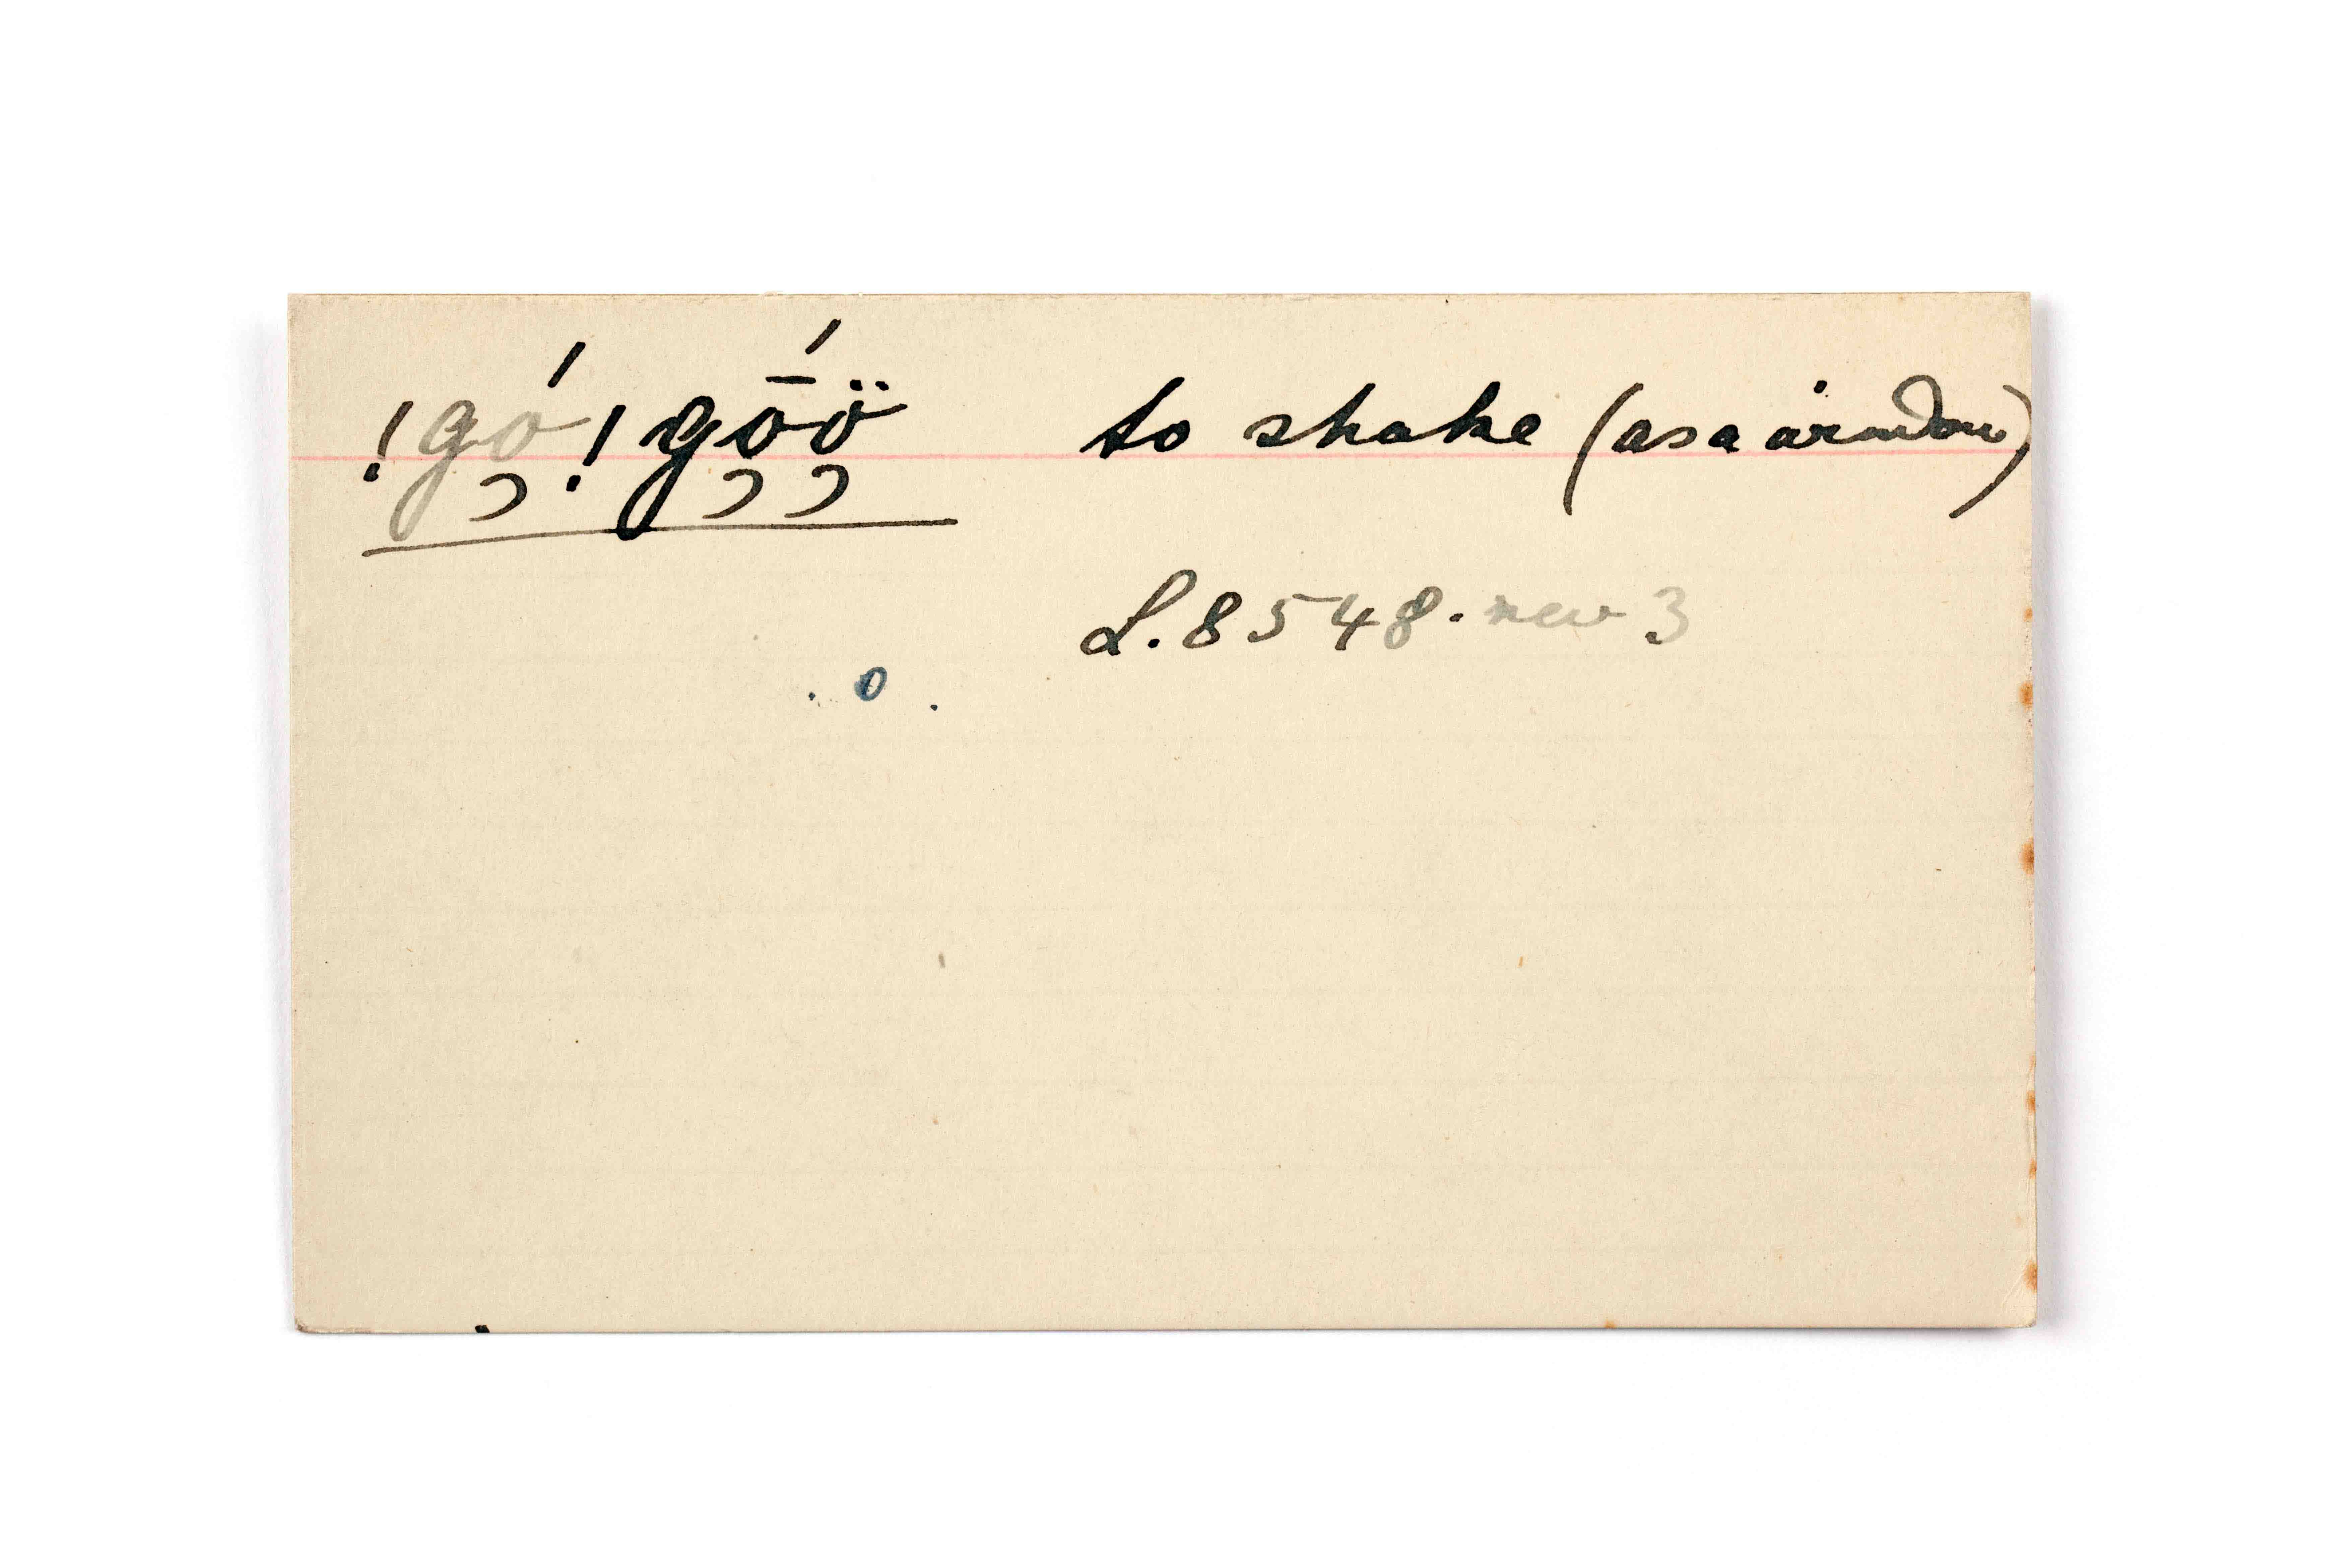 !gó̜!gṓ̜ö̜ to shake (as a window)
L. 8548. rev 3
o